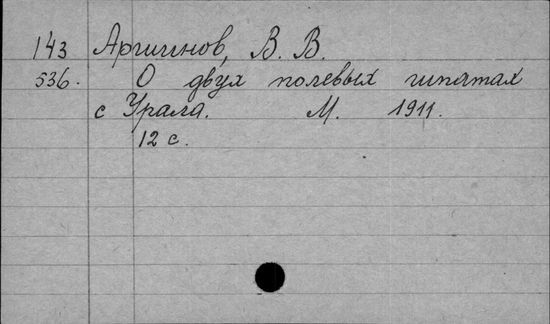 143 Аршинов, В. В.
536. О двух полевых шпатах
с Урала. М. 1911.
12 с.